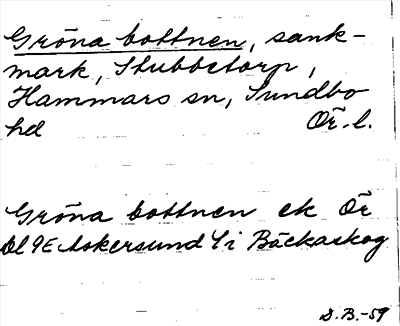 Gröna bottnen, sank-
mark, Stubbetorp,
Hammars sn, Sundbo
hd Ör. l.
Gröna bottnen ek Ör
Bl 9E Askersund 4i Bäckaskog
D.B.-59